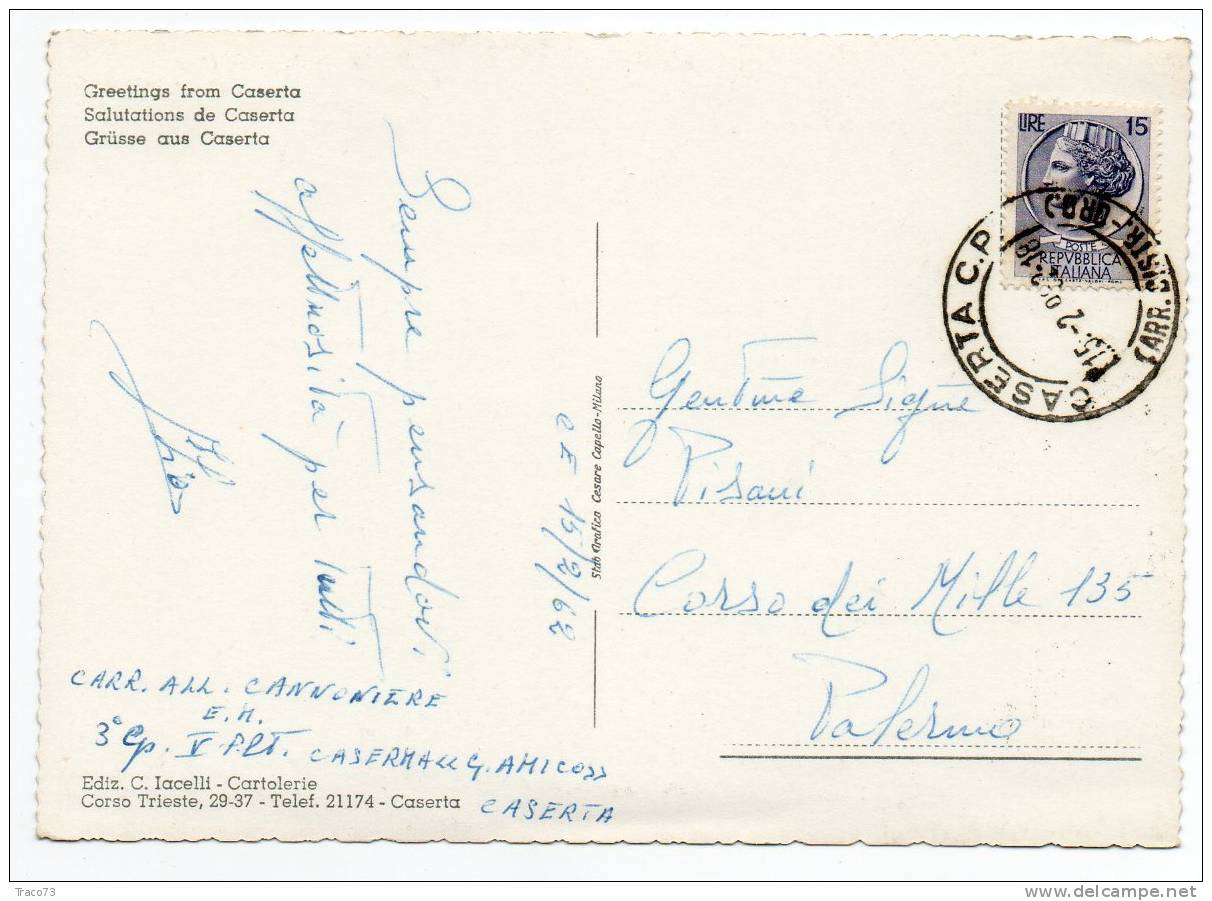 Greetings from Caserta
Salutations de Caserta
Grüsse aus Caserta
Sempre pensandovi
affettuosità per tutti
CE 15/2/62
CARR. ALL. CANNONIERE
E.M.
3° Cp. V PLT. CASERMA G. AMICO
CASERTA
Ediz. C. Iacelli - Cartolerie
Corso Trieste, 29-37 - Telef. 21174 - Caserta
Stab Grafico Cesare Capello-Milano
LIRE 15
POSTE
REPVBBLICA
ITALIANA
CASERTA C.P.
Pisani
Corso dei Mille 135
Palermo
Traco73
delcampe.net